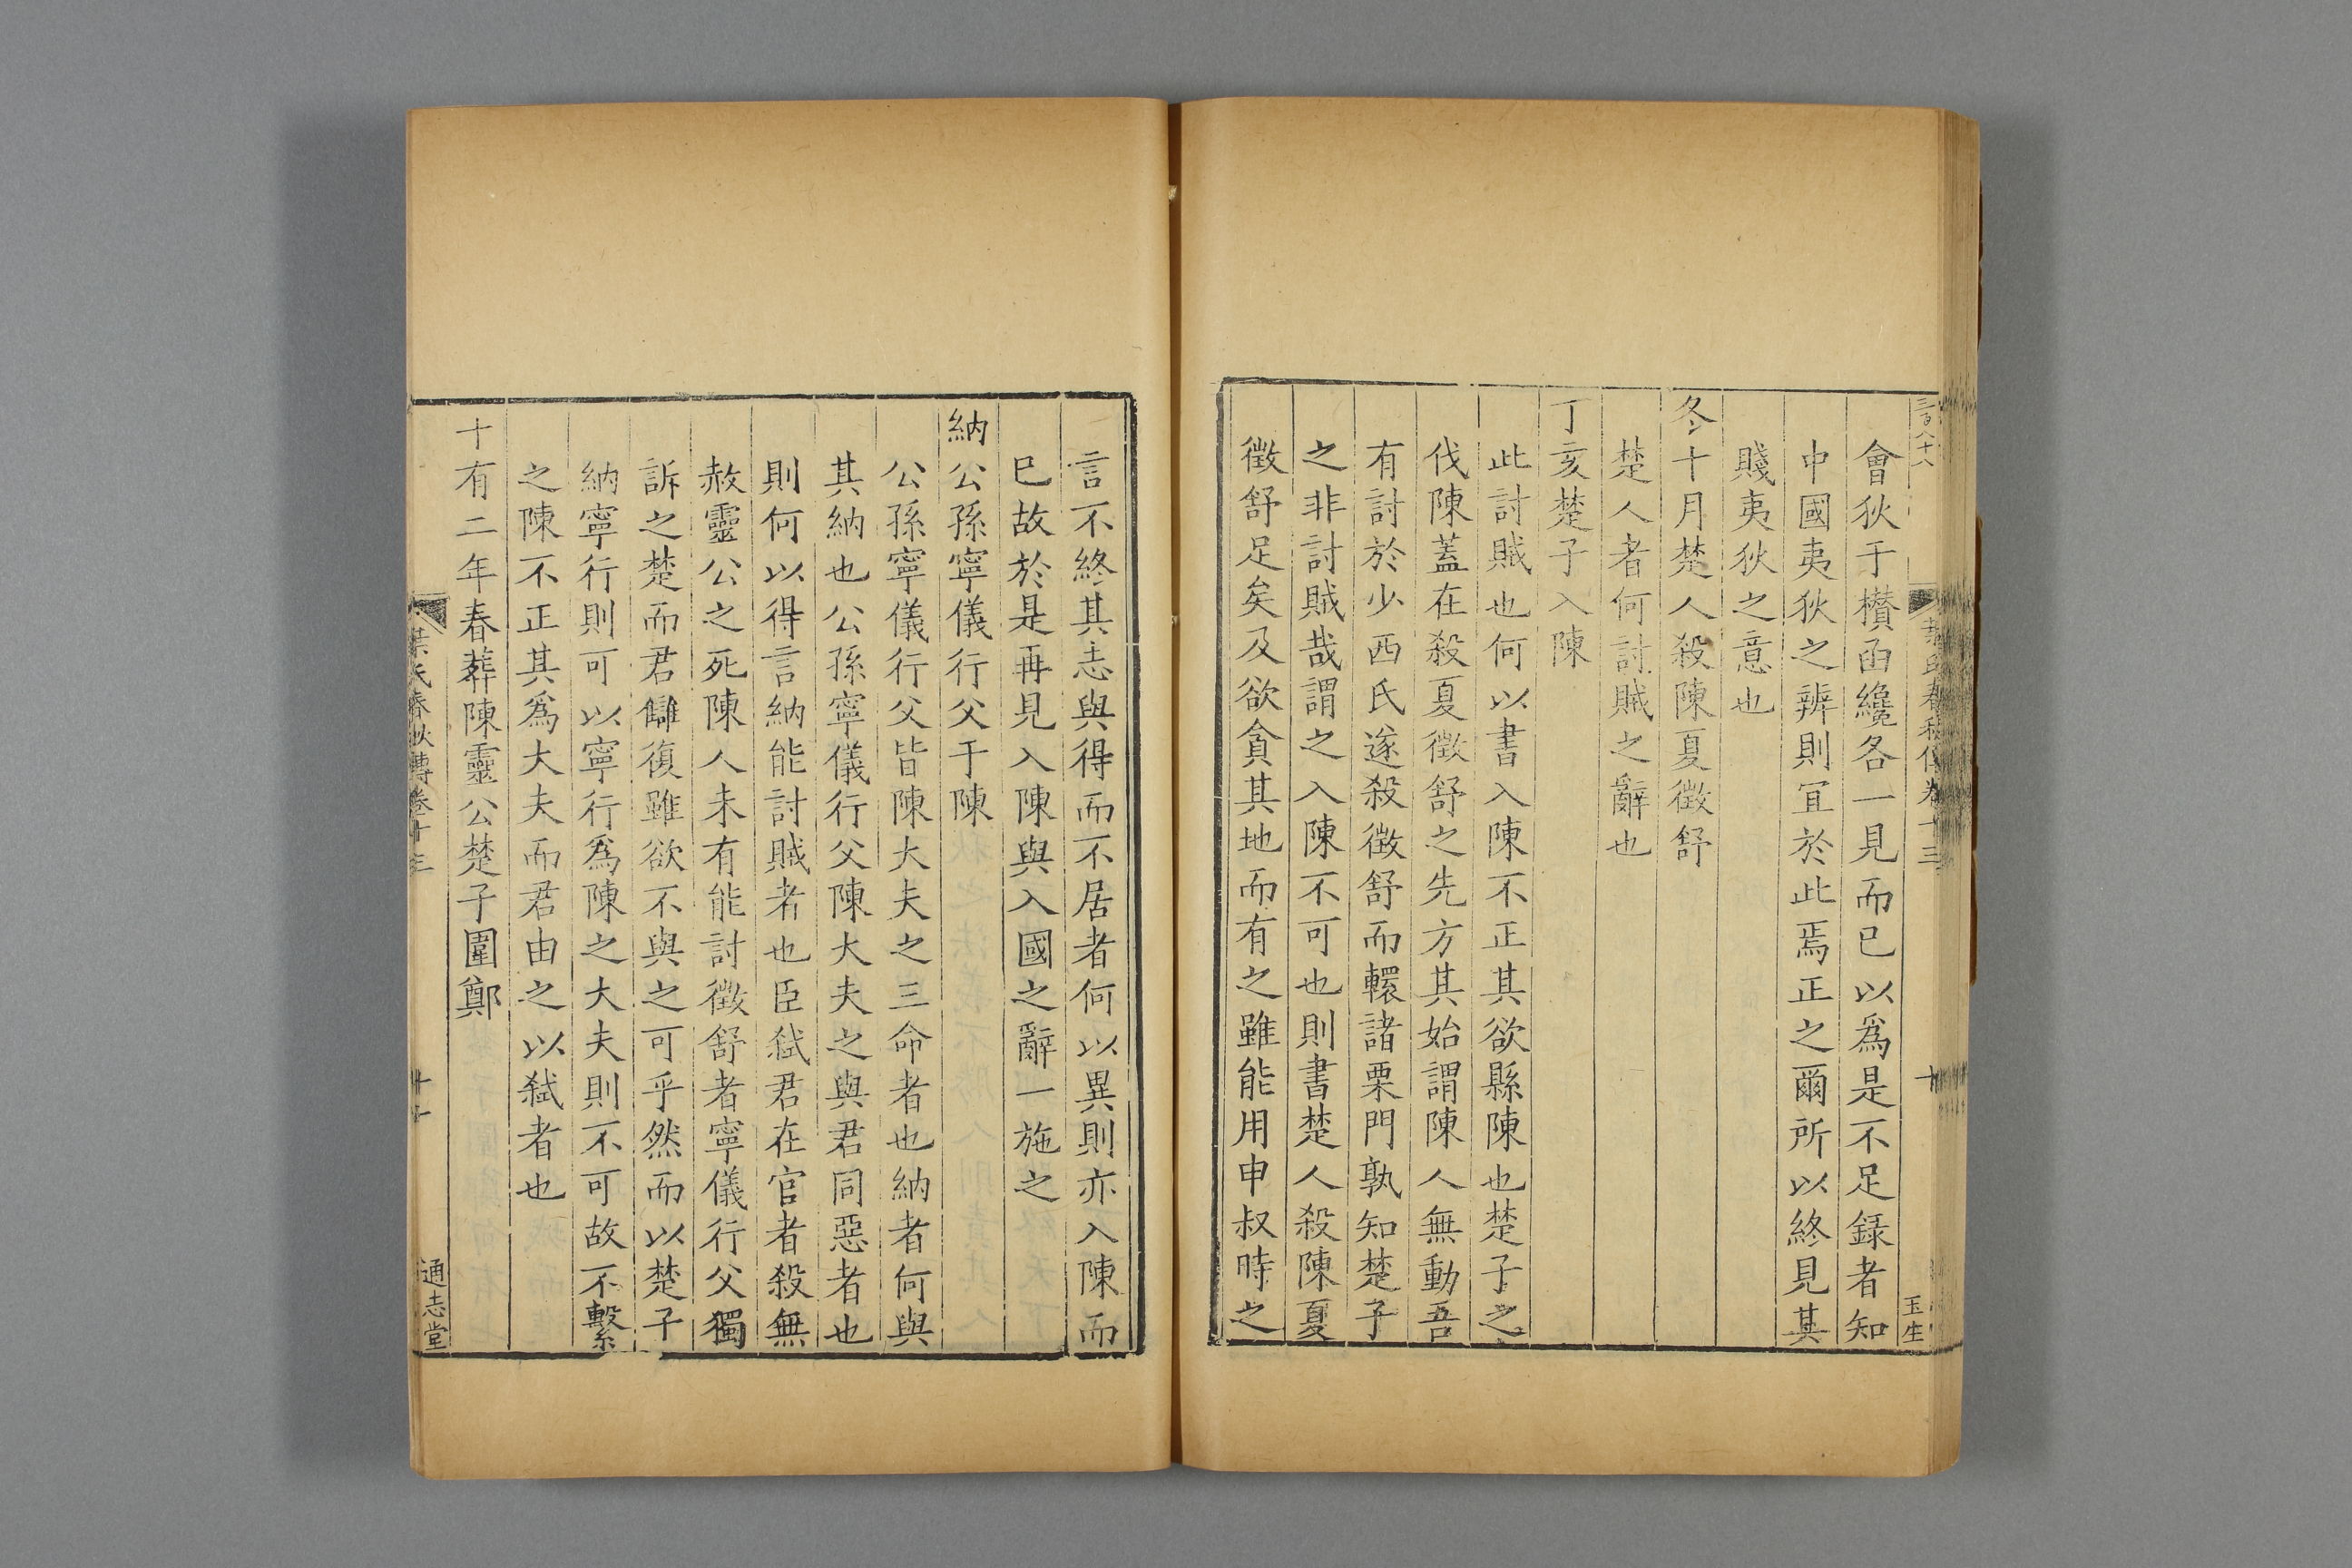 三百八十八
葉氏春秋傳卷十三
十
玉生
會狄于欑函纔各一見而已以爲是不足録者知
中國夷狄之辨則宜於此焉正之爾所以終見其
賤夷狄之意也
冬十月楚人殺陳夏徵舒
楚人者何討賊之辭也
丁亥楚子入陳
此討賊也何以書入陳不正其欲縣陳也楚子之
伐陳蓋在殺夏徵舒之先方其始謂陳人無動吾
有討於少西氏遂殺徵舒而轘諸栗門孰知楚子
之非討賊哉謂之入陳不可也則書楚人殺陳夏
徵舒足矣及欲貪其地而有之雖能用申叔時之
言不終其志與得而不居者何以異則亦入陳而
已故於是再見入陳與入國之辭一施之
納公孫寧儀行父于陳
公孫寧儀行父皆陳大夫之三命者也納者何與
其納也公孫寧儀行父陳大夫之與君同惡者也
則何以得言納能討賊者也臣弑君在官者殺無
赦靈公之死陳人未有能討徵舒者寧儀行父獨
訴之楚而君讎復雖欲不與之可乎然而以楚子
納寧行則可以寧行爲陳之大夫則不可故不繫
之陳不正其爲大夫而君由之以弑者也
十有二年春葬陳靈公楚子圍鄭
葉氏春秋傳卷十三
十一
通志堂